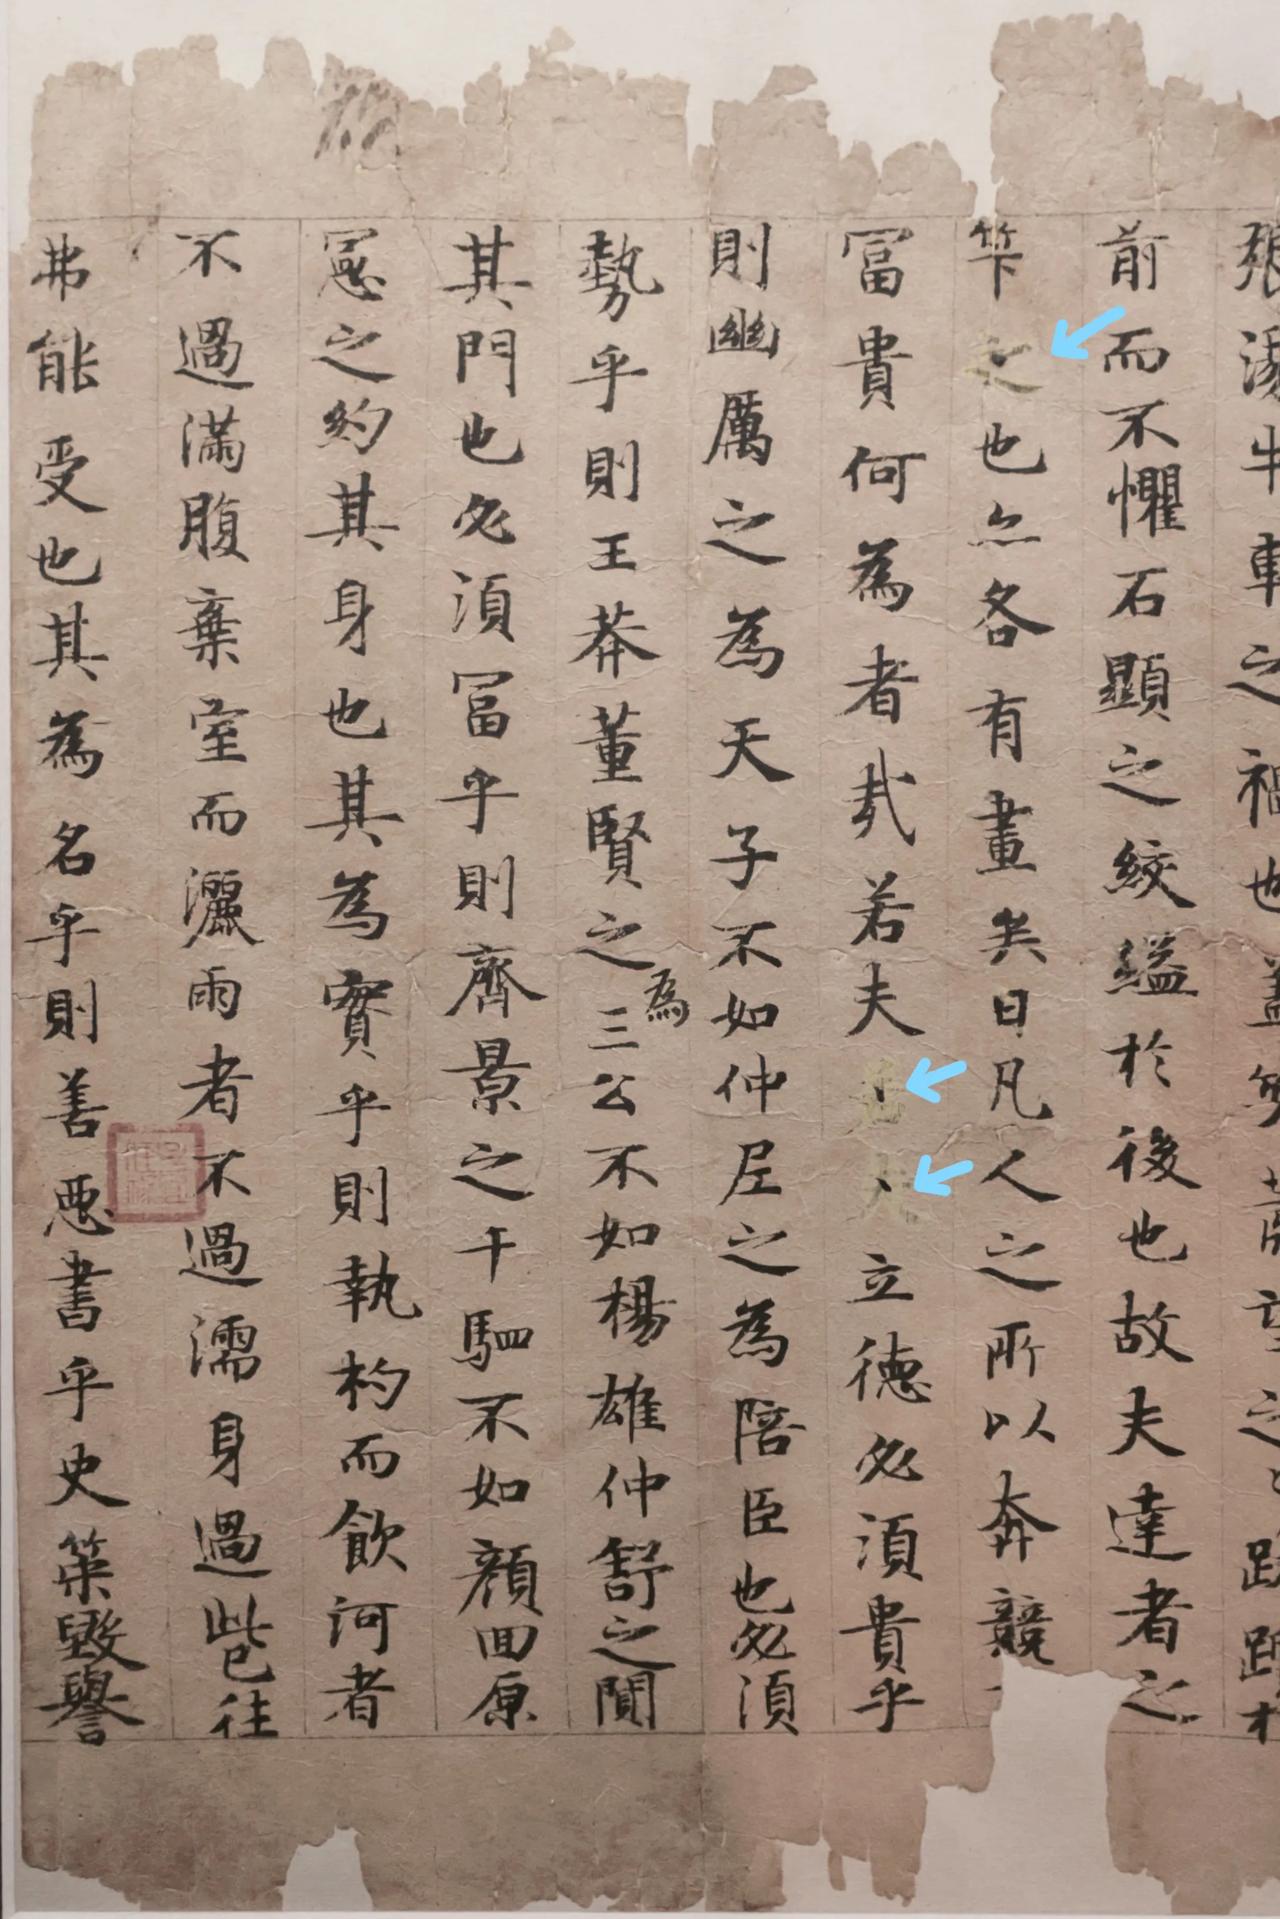 張湯牛車之禍也蓋笑蕭望之跋躓於
前而不懼石顯之絞縊於後也故夫達者之
笇也亦各有畫矣曰凡人之所以奔競
冨貴何為者哉若夫立德必須貴乎
則幽厲之為天子不如仲尼之為陪臣也必須
勢乎則王莽董賢之為三公不如楊雄仲舒之闃
其門也必須冨乎則齊景之千駟不如顏回原
憲之約其身也其為實乎則執杓而飲河者
不過滿腹棄室而灑雨者不過濡身過此已往
弗能受也其為名乎則善惡書乎史筞毀譽